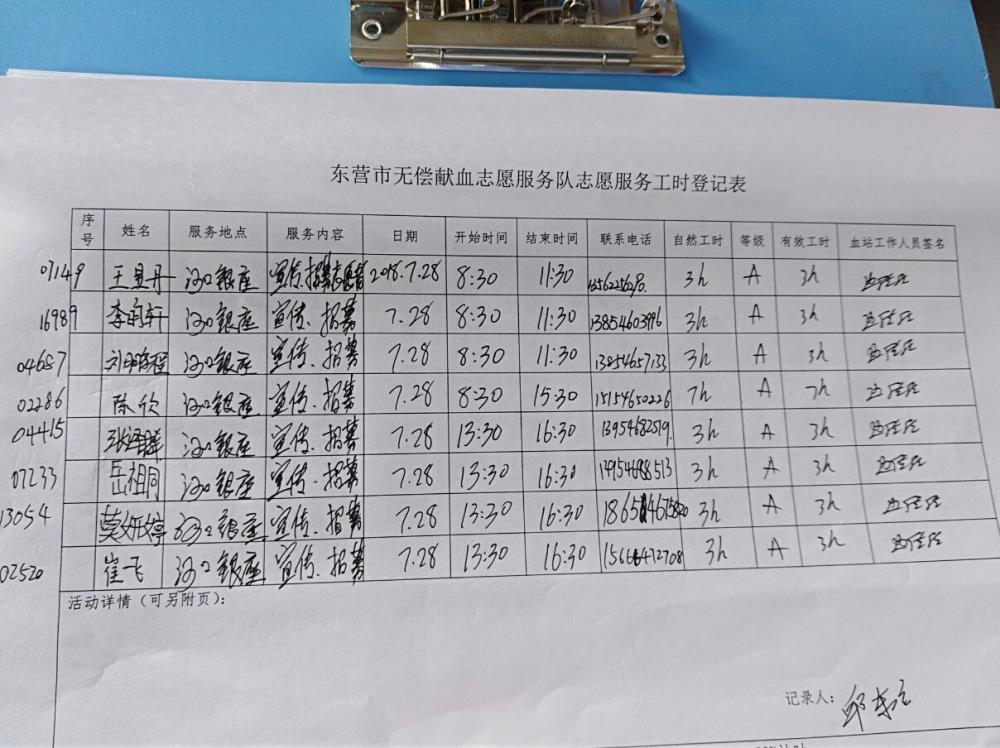 东营市无偿献血志愿服务队志愿服务工时登记表
序号 姓名 服务地点 服务内容 日期 开始时间 结束时间 联系电话 自然工时 等级 有效工时 血站工作人员签名
07149 王显丹 河口银座 宣传.招募志愿者 2018.7.28 8:30 11:30 3h A 3h
16989 李润轩 河口银座 宣传、招募 7.28 8:30 11:30 13854603996 3h A 3h
04687 河口银座 宣传、招募 7.28 8:30 11:30 13854657133 3h A 3h
02286 陈欣 河口银座 宣传、招募 7.28 8:30 15:30 15154650226 7h A 7h
04415 河口银座 宣传、招募 7.28 13:30 16:30 13954682519 3h A 3h
07233 岳祖同 河口银座 宣传、招募 7.28 13:30 16:30 13954688513 3h A 3h
13054 莫文婷 河口银座 宣传、招募 7.28 13:30 16:30 3h A 3h
02520 崔飞 河口银座 宣传、招募 7.28 13:30 16:30 3h A 3h
活动详情（可另附页）：
记录人：